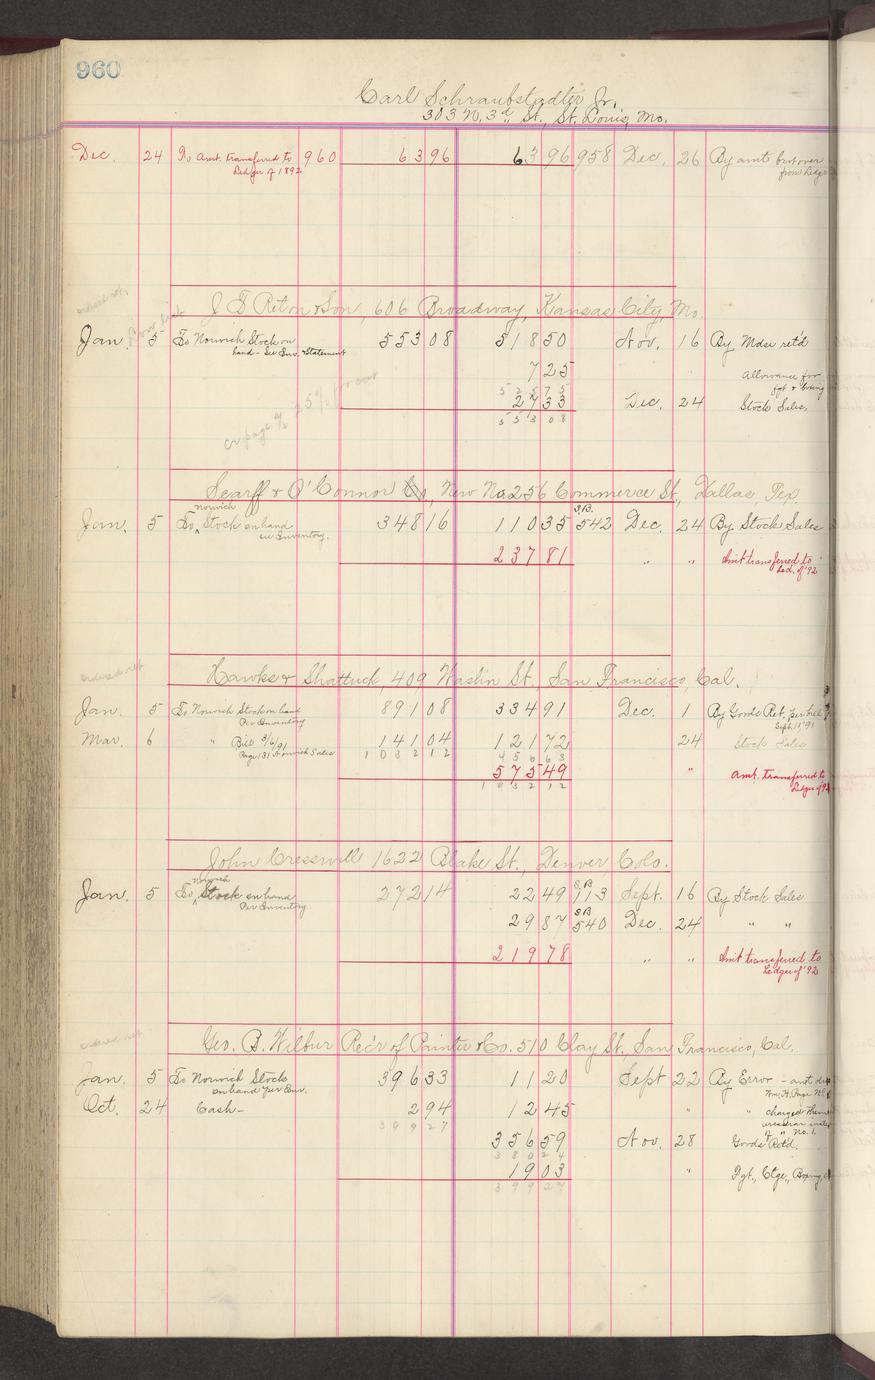 960
Carl Schraubstadter Jr.
303 N. 3d St., St. Louis, Mo.
Dec. 24 To Amt. transferred to 960 63 96 63 96 958 Dec. 26 By amt bro't over
Ledger of 1892 from Ledge
ordered ret.
J D Reton & Son, 606 Broadway, Kansas City, Mo.
Jan. 5 To Norwich Stock on 553 08 518 50 Nov. 16 By Mdse ret'd
hand - See Inv. & Statement
7 25 Allowance for
525 75 fgt & boxing
27 33 Dec. 24 Stock Sales,
553 08
cr page % 25% for cut
Scarff & O'Connor Co, New No 256 Commerce St., Dallas, Tex
Norwich S.B.
Jan. 5 To Stock on hand 348 16 110 35 542 Dec. 24 By Stock Sales
see Inventory.
237 81 " " Am't transferred to
Led. of '92
ordered ret
Hawks & Shattuck, 409 Wash'n St., San Francisco, Cal.
Jan. 5 To Norwich Stock on hand 891 08 334 91 Dec. 1 By Goods Ret. per bill
Per Inventory Sept. 11, '91
Mar. 6 " Bill 3/6/91 141 04 121 72 24 Stock Sales
Page 131 Norwich Sales 1032 12 456 63
575 49 " Amt. transferred to
1032 12 Ledger of 9
John Cresswell 1622 Blake St., Denver, Colo.
Norwich S.B.
Jan. 5 To Stock on hand 272 14 22 49 113 Sept. 16 By Stock Sales
Per Inventory S.B.
29 87 540 Dec. 24 " "
219 78 " " Am't transferred to
Ledger of '92
ordered ret.
Geo. B. Wilbur Rec'r of Painter & Co. 510 Clay St., San Francisco, Cal.
Jan. 5 To Norwich Stock 396 33 11 20 Sept 22 By Error - amt
on hand per Inv. Wm. H. Page
Oct. 24 Cash - 2 94 12 45 " " charged them
399 27
" " No. 1.
356 59 Nov. 28 Goods Ret'd.
380 24
19 03 " Fgt., Ctge., Boxing,
399 27